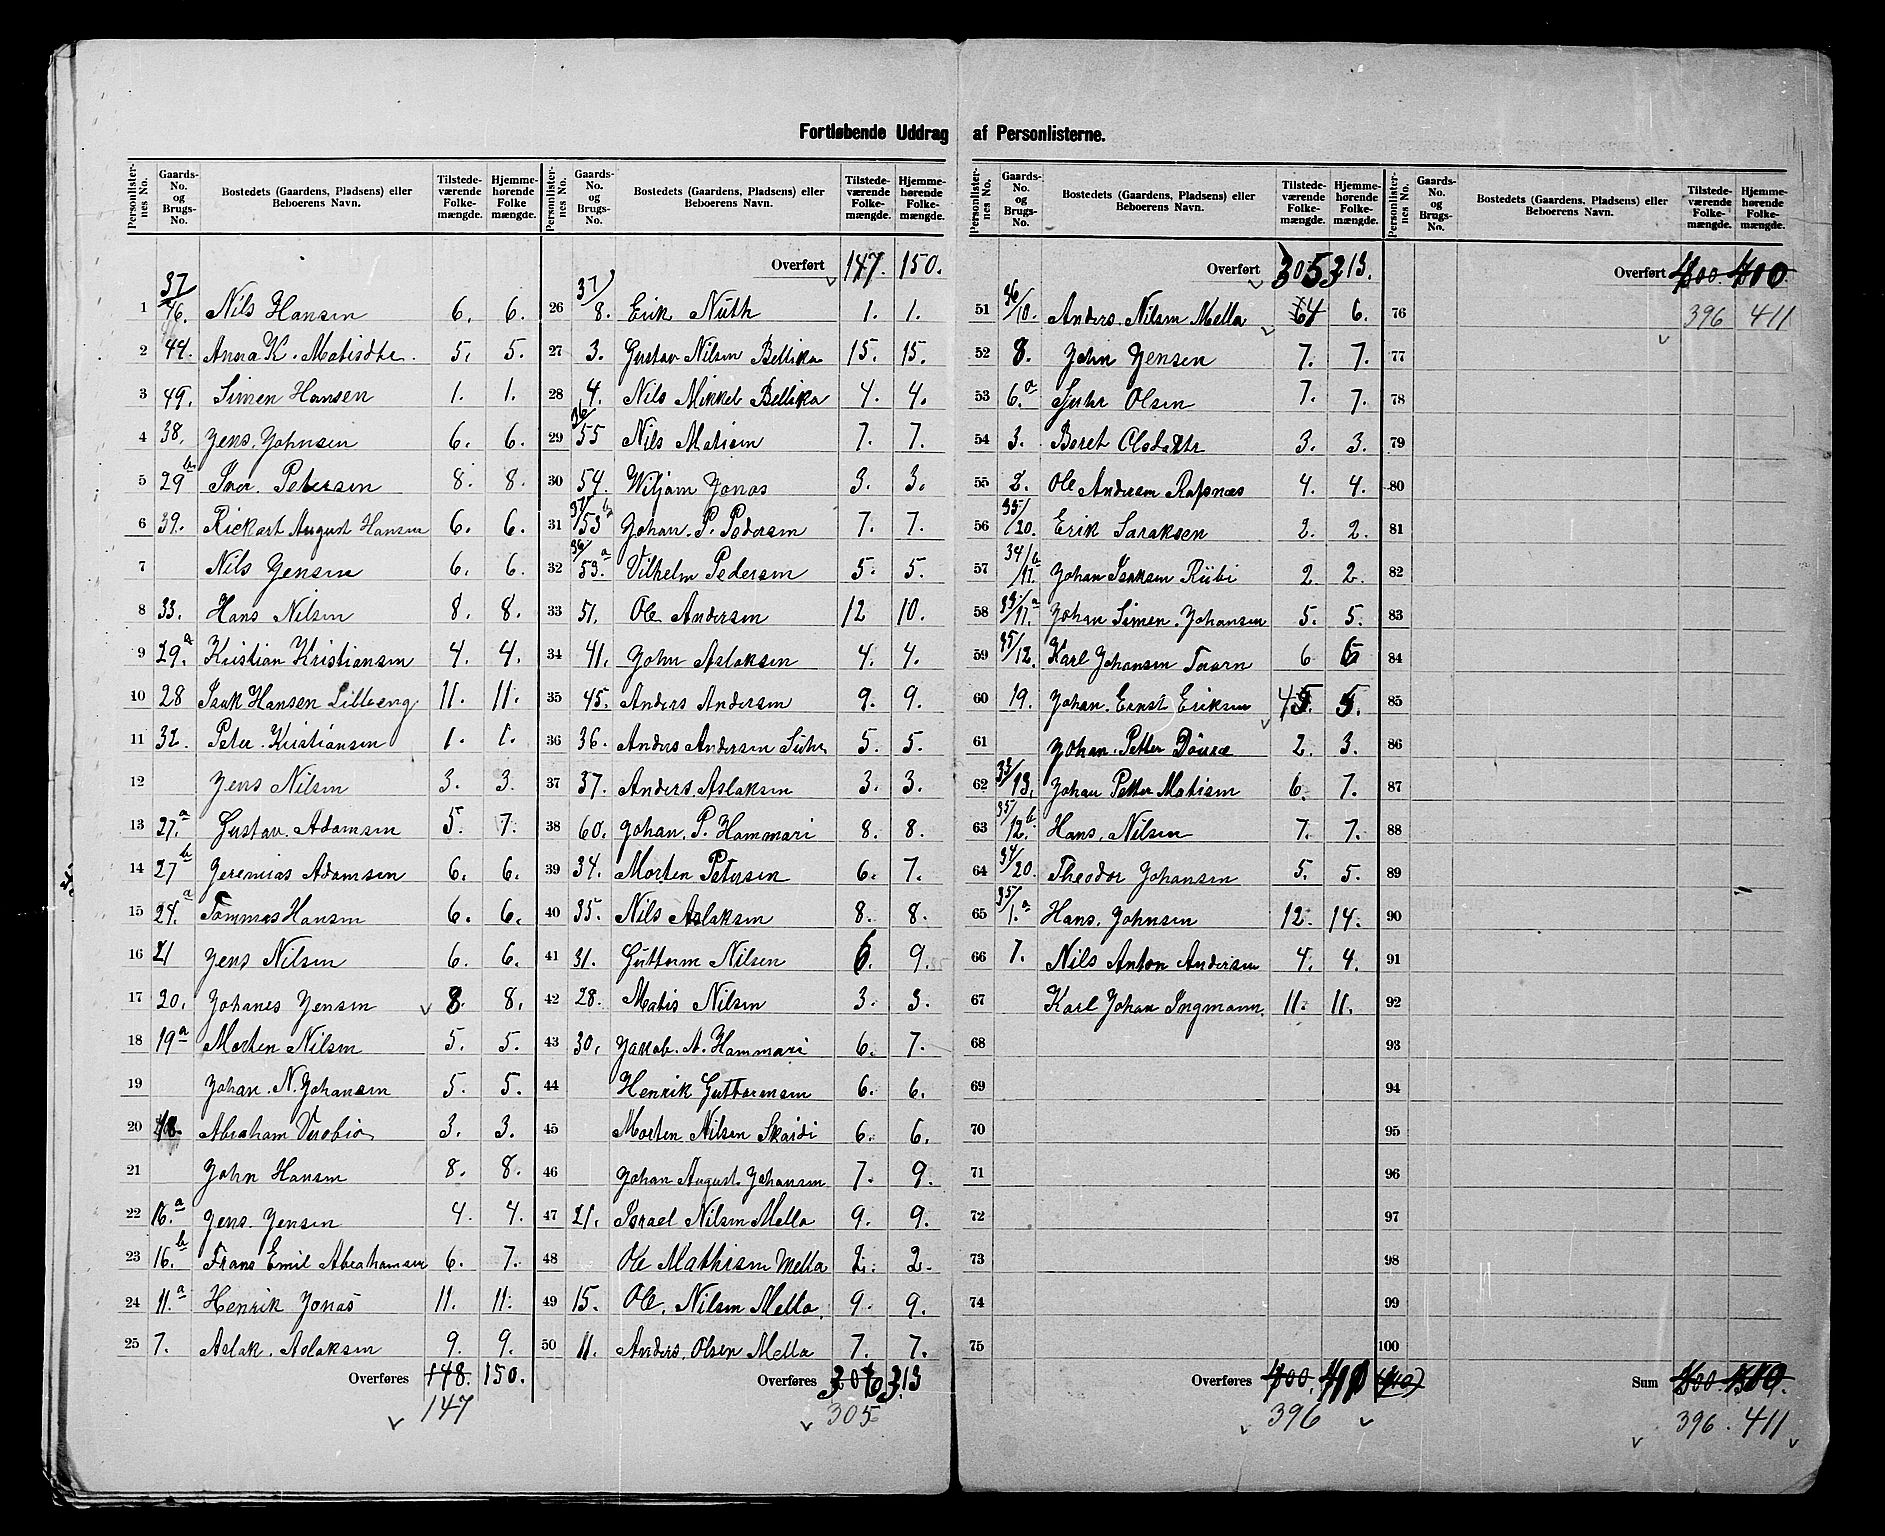 Fortløbende Uddrag af Personlisterne.
Personlister-nes No. Gaards-No. og Brugs-No. Bostedets (Gaardens, Pladsens) eller Beboerens Navn. Tilstede-værende Folke-mængde. Hjemme-hørende Folke mængde.
37/
1 46. Nils Hansen 6. 6.
2 44. Anna K. Matisdtr. 5. 5.
3 49. Simen Hansen 1. 1.
4 38. Jens. Johnsen 6. 6.
5 29 b Iver. Petersen 8. 8.
6 39. Rickart August Hansen 6. 6.
7 Nils Jensen 6. 6.
8 33. Hans Nilsen 8. 8.
9 29. a Kristian Kristiansen 4. 4.
10 28 Isak Hansen Lilleeng 11. 11.
11 32. Peter. Kristiansen 1. 1.
12 Jens Nilsen 3. 3.
13 27. a Gustav. Adamsen 5. 7.
14 27 b Jeremias Adamsen 6. 6.
15 24. a Tommas Hansen 6. 6.
16 21 Jens Nilsen 6. 6.
17 20. Johanes Jensen 8. 8.
18 19 a Morten Nilsen 5. 5.
19 Johan. N. Johansen 5. 5.
20 18. Abraham 3. 3.
21 John Hansen 8. 8.
22 16. a Jens. Jensen 4. 4.
23 16. b Frans Emil Abrahamsen 6. 7.
24 11. a Henrik Jonas 11. 11.
25 7. Aslak. Aslaksen 9. 9.
Overføres 148. 150.
147
Personlister-nes No. Gaards-No. og Brugs-No. Bostedets (Gaardens, Pladsens) eller Beboerens Navn. Tilstede-værende Folke-mængde. Hjemme-hørende Folke-mængde.
Overført 147. 150.
37/
26 8. Erik Nuth 1. 1.
27 3. Gustav Nilsen Bellika 15. 15.
28 4. Nils Mikkel Bellika 4. 4.
29 36/55 Nils Matisen 7. 7.
30 54. Wiljam Jonas 3. 3.
31 37/53 b Johan. P. Pedersen 7. 7.
32 36/53. a Vilhelm Pedersen 5. 5.
33 51. Ole Andersen 12 10.
34 41. John Aslaksen 4. 4.
35 45. Anders Andersen 9. 9.
36 36. Anders Andersen 5. 5.
37 37. Anders Aslaksen 3. 3.
38 60. Johan. P. Hammari 8. 8.
39 34. Morten Petersen 6. 7.
40 35. Nils Aslaksen 8. 8.
41 31. Guttorm Nilsen 6. 9.
42 28. Matis Nilsen 3. 3.
43 30. Jakob. A. Hammari 6. 7.
44 Henrik Guttormsen 6. 6.
45 Morten Nilsen Skardi 6. 6.
46 Johan August Johansen 7. 9.
47 21. Israel Nilsen Mella 9. 9.
48 Ole Mathisen Mella 2. 2.
49 15. Ole. Nilsen Mella. 9. 9.
50 11. Anders. Olsen Mella 7. 7.
Overføres 306 313
305
Personlister-nes No. Gaards-No. og Brugs-No. Bostedets (Gaardens, Pladsens) eller Beboerens Navn. Tilstede-værende Folke-mængde. Hjemme-hørende Folke-mængde.
Overført 305 313.
51 36/10. Anders. Nilsen Mella 4 6.
52 8. John Jensen 7. 7.
53 6. a Sjuhr Olsen 7. 7.
54 3. Beret Olsdatr 3. 3.
55 2. Ole Andersen Rafsnæs 4. 4.
56 35/20. Erik Saraksen 2. 2.
57 34/17. b Johan Isaksen Rübi 2. 2.
58 33/17. a Johan Simen. Johansen 5. 5.
59 35/12. Karl Johansen 6 6
60 19. Johan. Ernst Eriksen 45. 5.
61 Johan. Petter 2. 3.
62 33/13. Johan Petter Matisen 6. 7.
63 35/12. b Hans. Nilsen 7. 7.
64 34/20. Theodor Johansen 5. 5.
65 35/1. a Hans. Johnsen 12. 14.
66 7. Nils Anton Andersen 4. 4.
67 Karl Johan Ingmann. 11. 11.
68
69
70
71
72
73
74
75
Overføres 400. 411 (410)
396
Personlister-nes No. Gaards-No. og Brugs-No. Bostedets (Gaardens, Pladsens) eller Beboerens Navn. Tilstede-værende Folke-mængde. Hjemme-hørende Folke-mængde.
Overført 400. 400
76 396 411
77
78
79
80
81
82
83
84
85
86
87
88
89
90
91
92
93
94
95
96
97
98
99
100
Sum 400. 410.
396. 411